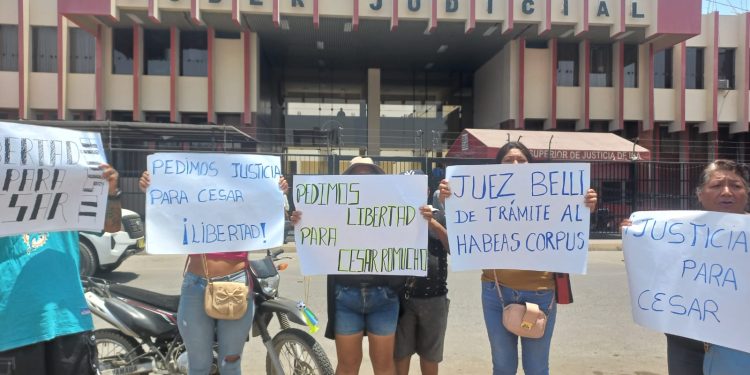 PODER JUDICIAL
SUPERIOR DE JUSTICIA DE
IBERTAD
PARA
SAR
PEDIMOS JUSTICIA
PARA CESAR
¡LIBERTAD!
PEDIMOS
LIBERTAD
PARA
CESAR ROMUCHO
JUEZ BELLI
DE TRÁMITE AL
HABEAS CORPUS
JUSTICIA
PARA
CESAR